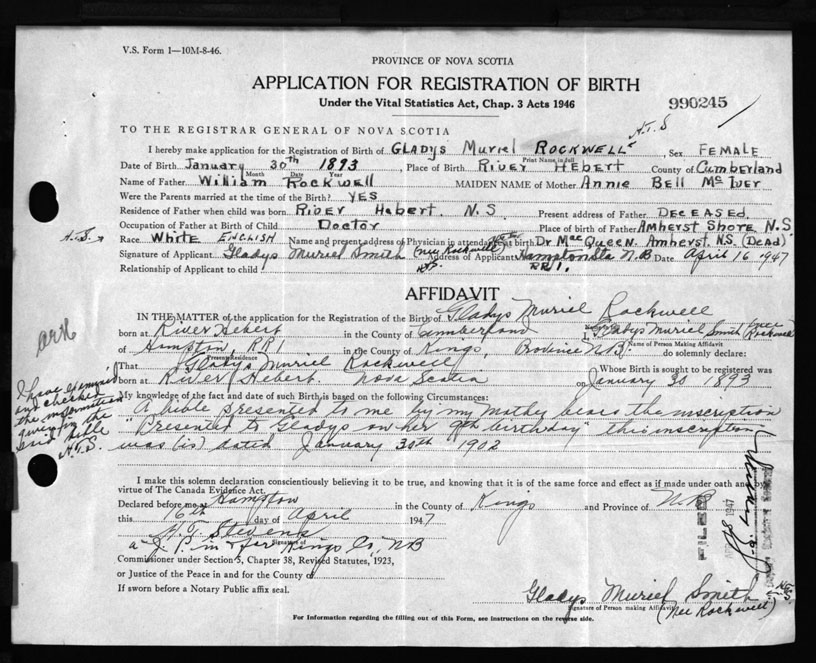 V.S. Form 1—10M-8-46.
PROVINCE OF NOVA SCOTIA
APPLICATION FOR REGISTRATION OF BIRTH
Under the Vital Statistics Act, Chap. 3 Acts 1946
990245
H.T.S
TO THE REGISTRAR GENERAL OF NOVA SCOTIA
I hereby make application for the Registration of Birth of GLADYS MURIEL ROCKWELL, Sex FEMALE
Print Name in full
Date of Birth January 30th 1893, Place of Birth RIVER HEBERT County of Cumberland
Month Day Year
Name of Father William Rockwell MAIDEN NAME of Mother Annie Bell McIver
Were the Parents married at the time of the Birth? YES
Residence of Father when child was born RIVER Hebert. N.S. Present address of Father DECEASED.
Occupation of Father at Birth of Child Doctor Place of birth of Father AMHERST SHORE N.S.
H.T.S. Race White ENGLISH Name and present address of Physician in attendance at birth Dr MacQueen. Amherst. N.S. (DEAD)
Signature of Applicant Gladys Muriel Smith (nee Rockwell) Address of Applicant Hampton Sta N.B. Date April 16 1947
H.T.S. RR1.
Relationship of Applicant to child
AFFIDAVIT
IN THE MATTER of the application for the Registration of the Birth of Gladys Muriel Rockwell
born at River Hebert in the County of Cumberland Gladys Muriel Smith (nee Rockwell)
Name of Person Making Affidavit
of Hampton, RR1 in the County of Kings, Province N.B. do solemnly declare:
Present Residence
That Gladys Muriel Rockwell Whose Birth is sought to be registered was
born at River Hebert, Nova Scotia on January 30 1893
My knowledge of the fact and date of such Birth is based on the following Circumstances:
A bible presented to me by my Mother bears the inscription
"Presented to Gladys on her 9th birthday" this inscription
was (is) dated January 30th 1902
I have examined
and checked
the information
given in the
said bible
H.T.S.
I make this solemn declaration conscientiously believing it to be true, and knowing that it is of the same force and effect as if made under oath and by
virtue of The Canada Evidence Act.
Declared before me at Hampton in the County of Kings and Province of N.B
this 16th day of April 1947
H.T. Stevens
Signature of
a J.P. in & for Kings Co, NB
Commissioner under Section 5, Chapter 38, Revised Statutes, 1923,
or Justice of the Peace in and for the County of
If sworn before a Notary Public affix seal.
FILED
1947
Gladys Muriel Smith
Signature of Person making Affidavit
(Nee Rockwell)
H.T.S
For Information regarding the filling out of this Form, see instructions on the reverse side.